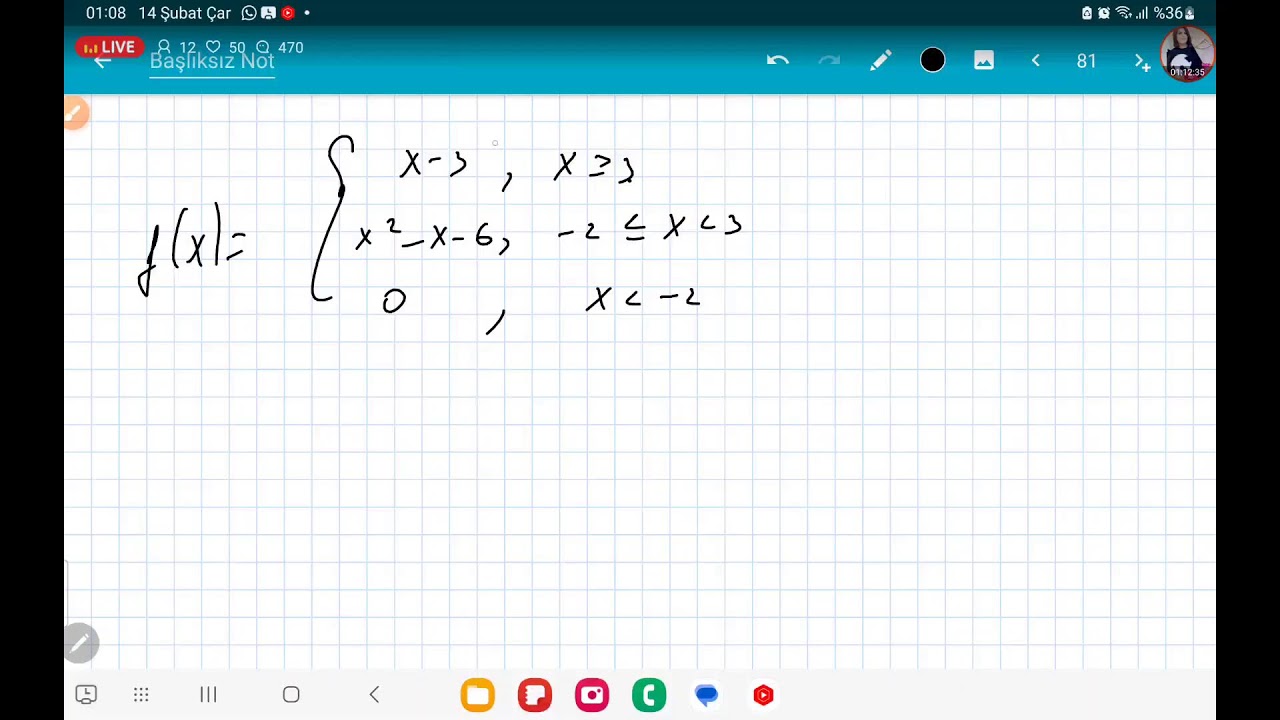 01:08 14 Şubat Çar %36
LIVE 12 50 470
Başlıksız Not 81
01:12:35
x-3 , x ≥ 3
f(x)= x²-x-6, -2 ≤ x < 3
0 , x < -2